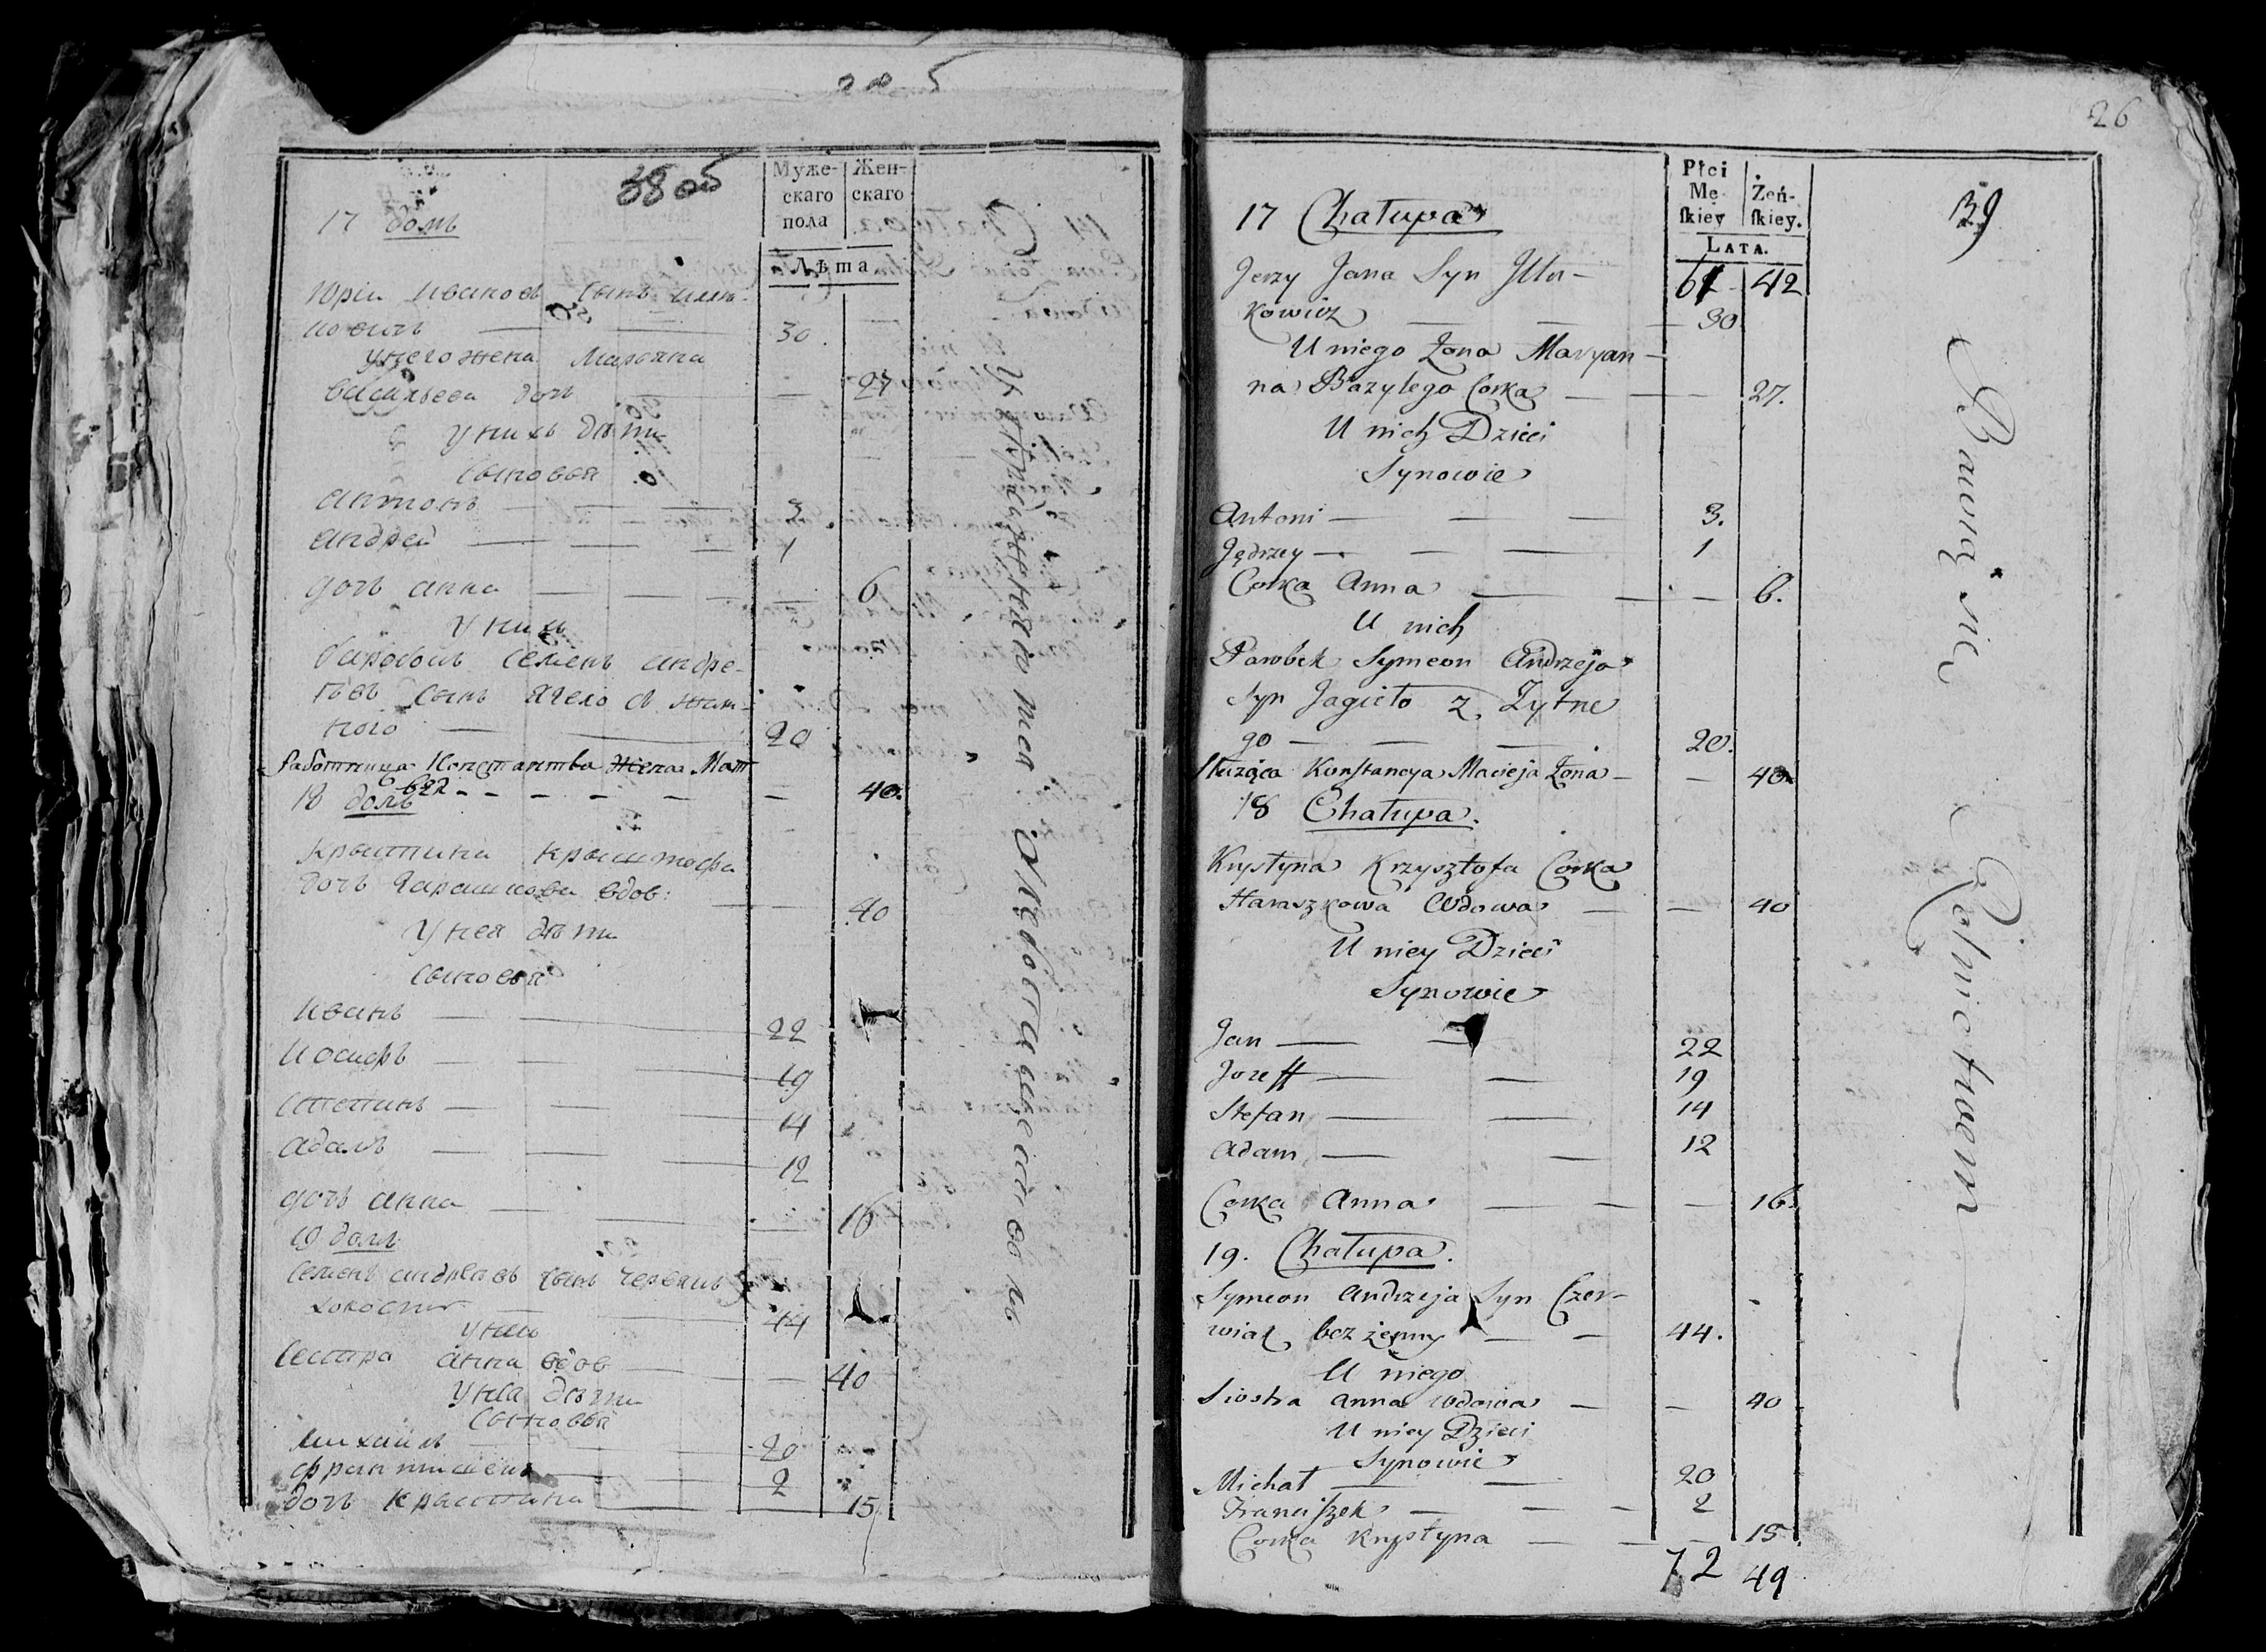 38 об
Муже-
скаго
пола
Жен-
скаго
Лѣта
17 домъ
Юрiи Ивановъ сынъ
новичъ 30
у него жена Марьяна
Васильева дочь 27
у нихъ дѣти
сыновья
Антонъ 3
Андрей 1
дочь Анна 6
у нихъ
Паробокъ Семенъ Андре-
евъ сынъ Ягело съ Жит-
ного 20
Работница Константва жена Мат
вея 40.
18 домъ
Крыстина Крыштофа
дочь Гарашкова вдов: 40
у нея дѣти
сыновья
Иванъ 22
Иосифъ 19
Степанъ 14
Адамъ 12
дочь Анна 16
19 домъ
Семенъ Андреевъ сынъ Червякъ
холостъ 44
у него
сестра Анна вдов 40
у нея дѣти
сыновья
Михаилъ 20
Францишекъ 2
дочь Крыстина 15
26
39
Płci
Mę-
skiey
Żeń-
skiey.
LATA.
17 Chałupa
61 42
Jerzy Jana Syn
kowicz 30
U niego Żona Maryan
na Bazylego Corka 27.
U nich Dzieci
Synowie
Antoni 3.
Jędrzey 1
Corka Anna 6.
U nich
Parobek Symeon Andrzeja
Syn Jagieło z Żytne
go 20.
Służąca Konstancya Macieja Żona 40
18 Chałupa.
Krystyna Krzysztofa Corka
Haraszkowa Wdowa 40
U niey Dzieci
Synowie
Jan 22
Jozeff 19
Stefan 14
Adam 12
Corka Anna 16.
19. Chałupa.
Symeon Andrzeja Syn Czer-
wiak bez żenny 44.
U niego
Siostra Anna Wdowa 40
U niey Dzieci
Synowie
Michał 20
Franciszek 2
Corka Krystyna 15
72 49
Bawią się Rolnictwem